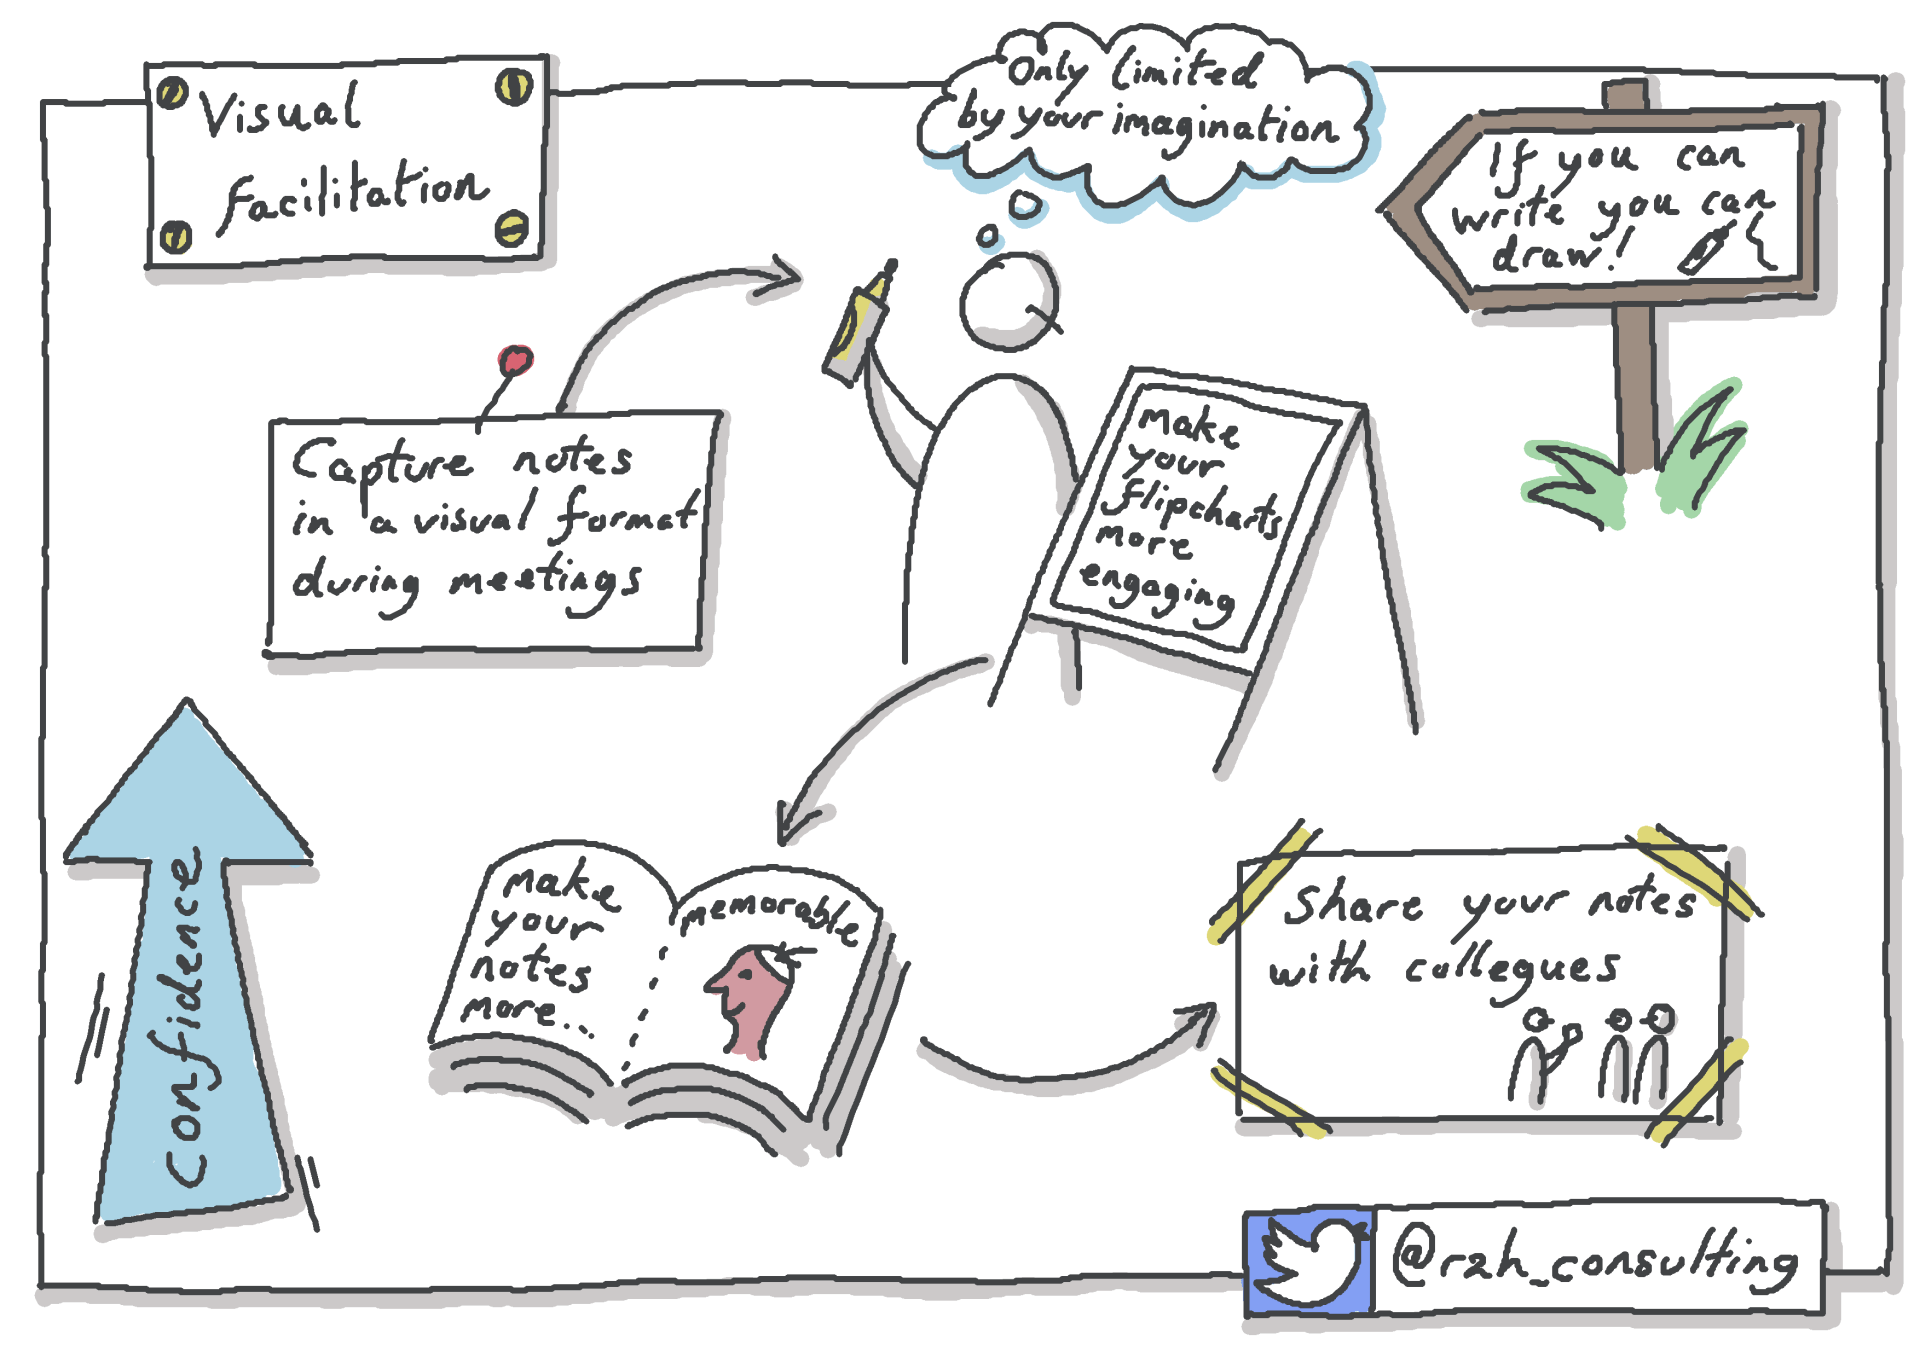 Visual
Facilitation
Only limited
by your imagination
If you can
write you can
draw!
Capture notes
in a visual format
during meetings
Make
your
flipcharts
more
engaging
Confidence
Make
your
notes
more...
memorable
Share your notes
with collegues
@r2h_consulting